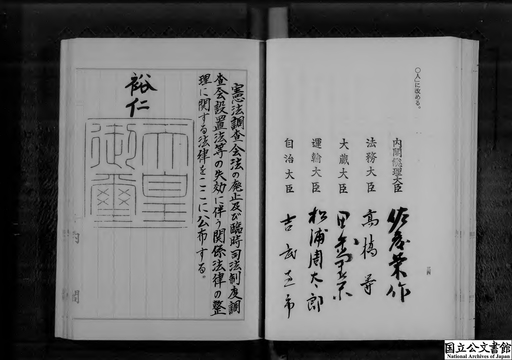 〇人」に改める。
内閣総理大臣 佐藤栄作
法務大臣 高橋等
大蔵大臣 田中角栄
運輸大臣 松浦周太郎
自治大臣 吉武恵市
憲法調査会法の廃止及び臨時司法制度調
査会設置法等の失効に伴う関係法律の整
理に関する法律をここに公布する。
裕仁
天皇
御璽
内閣
国立公文書館
National Archives of Japan